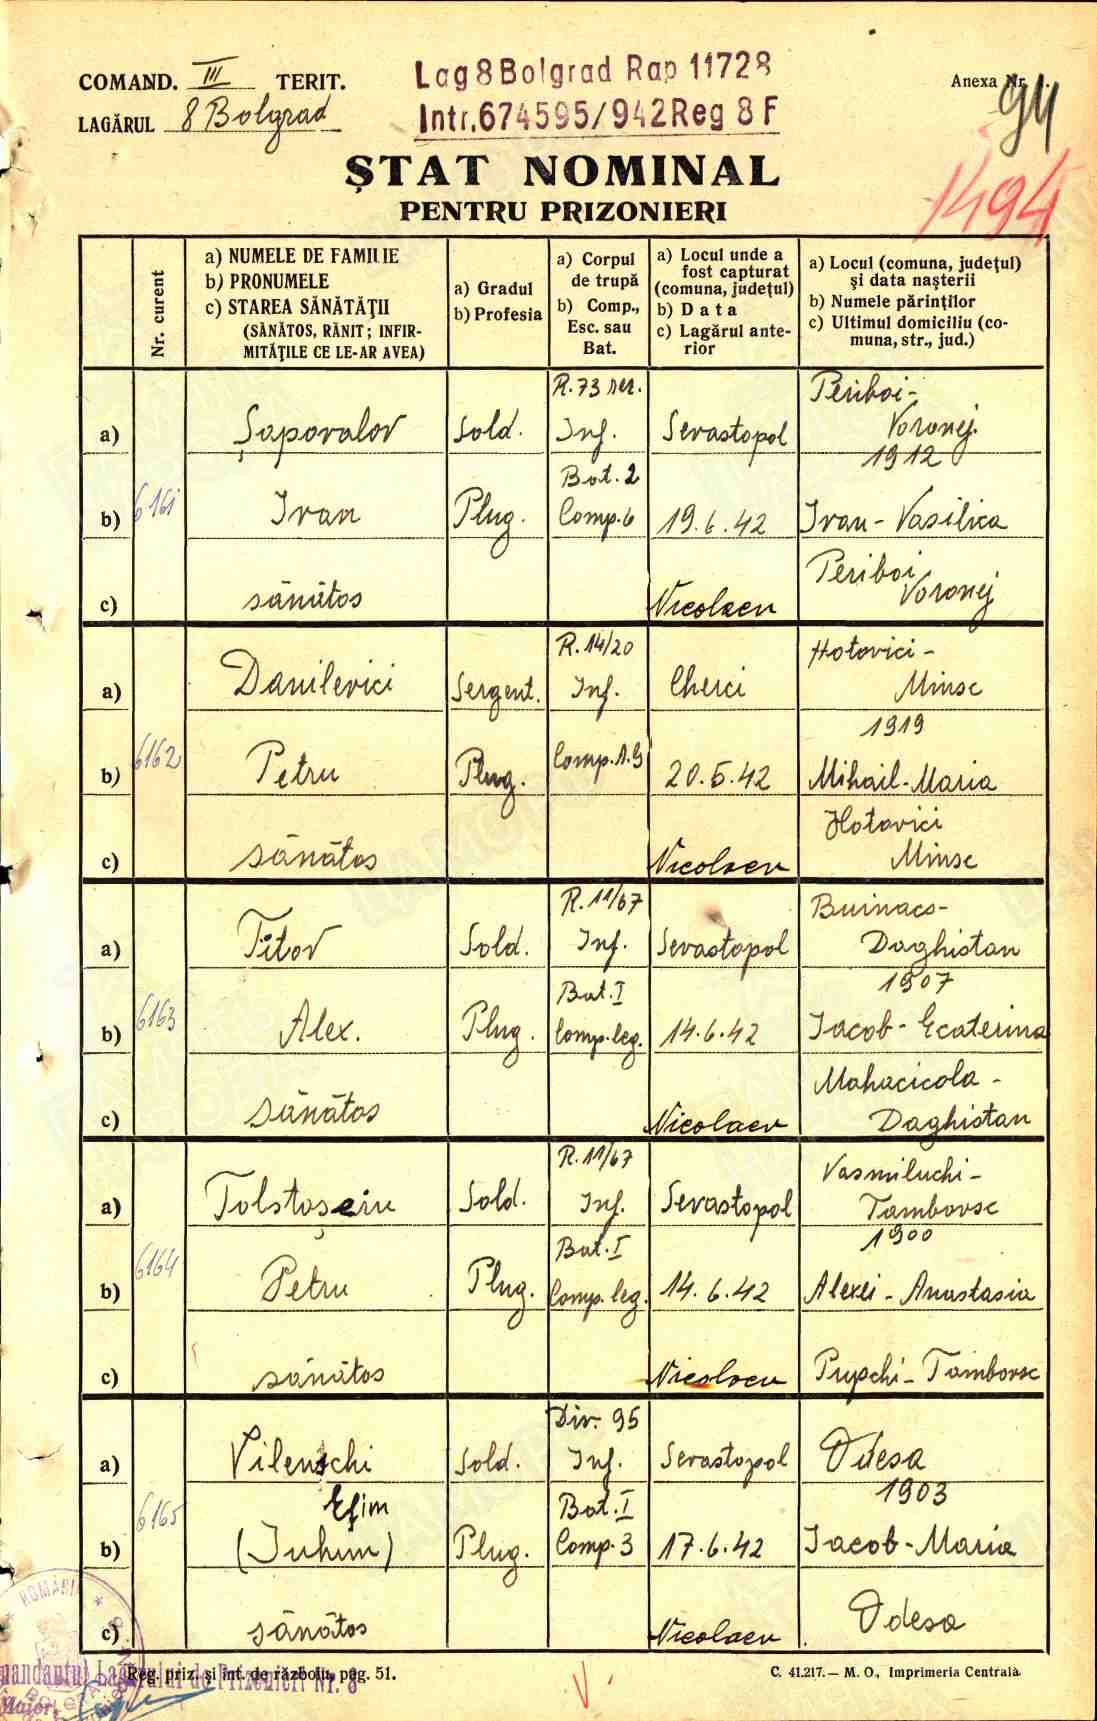 COMAND. III TERIT.
LAGĂRUL 8 Bolgrad
Lag 8 Bolgrad Rap 11728
Intr. 674595/942 Reg 8 F
Anexa Nr. 1.
94
1494
ŞTAT NOMINAL
PENTRU PRIZONIERI
Nr. curent
a) NUMELE DE FAMILIE
b) PRONUMELE
c) STAREA SĂNĂTĂŢII
(SĂNĂTOS, RĂNIT; INFIR-
MITĂŢILE CE LE-AR AVEA)
a) Gradul
b) Profesia
a) Corpul
de trupă
b) Comp.,
Esc. sau
Bat.
a) Locul unde a
fost capturat
(comuna, judeţul)
b) Data
c) Lagărul ante-
rior
a) Locul (comuna, judeţul)
şi data naşterii
b) Numele părinţilor
c) Ultimul domiciliu (co-
muna, str., jud.)
R. 73 rez. Periboi-
a) Şaporalov Sold. Inf. Sevastopol Voronej.
1912
6161 Bat. 2
b) Ivan Plug. Comp. 6 19.6.42 Ivan - Vasilica
Periboi
c) sănătos Nicolaev Voronej
R. 14/20 Hotovici -
a) Danilevici Sergent. Inf. Cherci Minsc
1919
6162
b) Petru Plug. Comp. A.G 20.5.42 Mihail - Maria
Hotovici
c) sănătos Nicolaev Minsc
R. 11/67 Buinacs-
a) Titov Sold. Inf. Sevastopol Daghistan
1907
6163 Bat. I
b) Alex. Plug. Comp. leg. 14.6.42 Iacob - Ecaterina
Mahacicola -
c) sănătos Nicolaev Daghistan
R. 11/67 Vasmiluchi -
a) Tolstoşeiu Sold. Inf. Sevastopol Tambovsc
1900
6164 Bat. I
b) Petru Plug. Comp. leg. 14.6.42 Alexei - Anastasia
c) sănătos Nicolaev Pupchi - Tambovsc
Div. 95
a) Vilenschi Sold. Inf. Sevastopol Odesa
1903
6165 Efim Bat. I
b) (Iuhim) Plug. Comp. 3 17.6.42 Iacob - Maria
c) sănătos Nicolaev Odesa
Reg. priz. şi int. de războiu, pag. 51.
C. 41.217. — M. O., Imprimeria Centrală.
ROMÂNIA
mandantul Lagărului de Prizonieri Nr. 8
Maior,